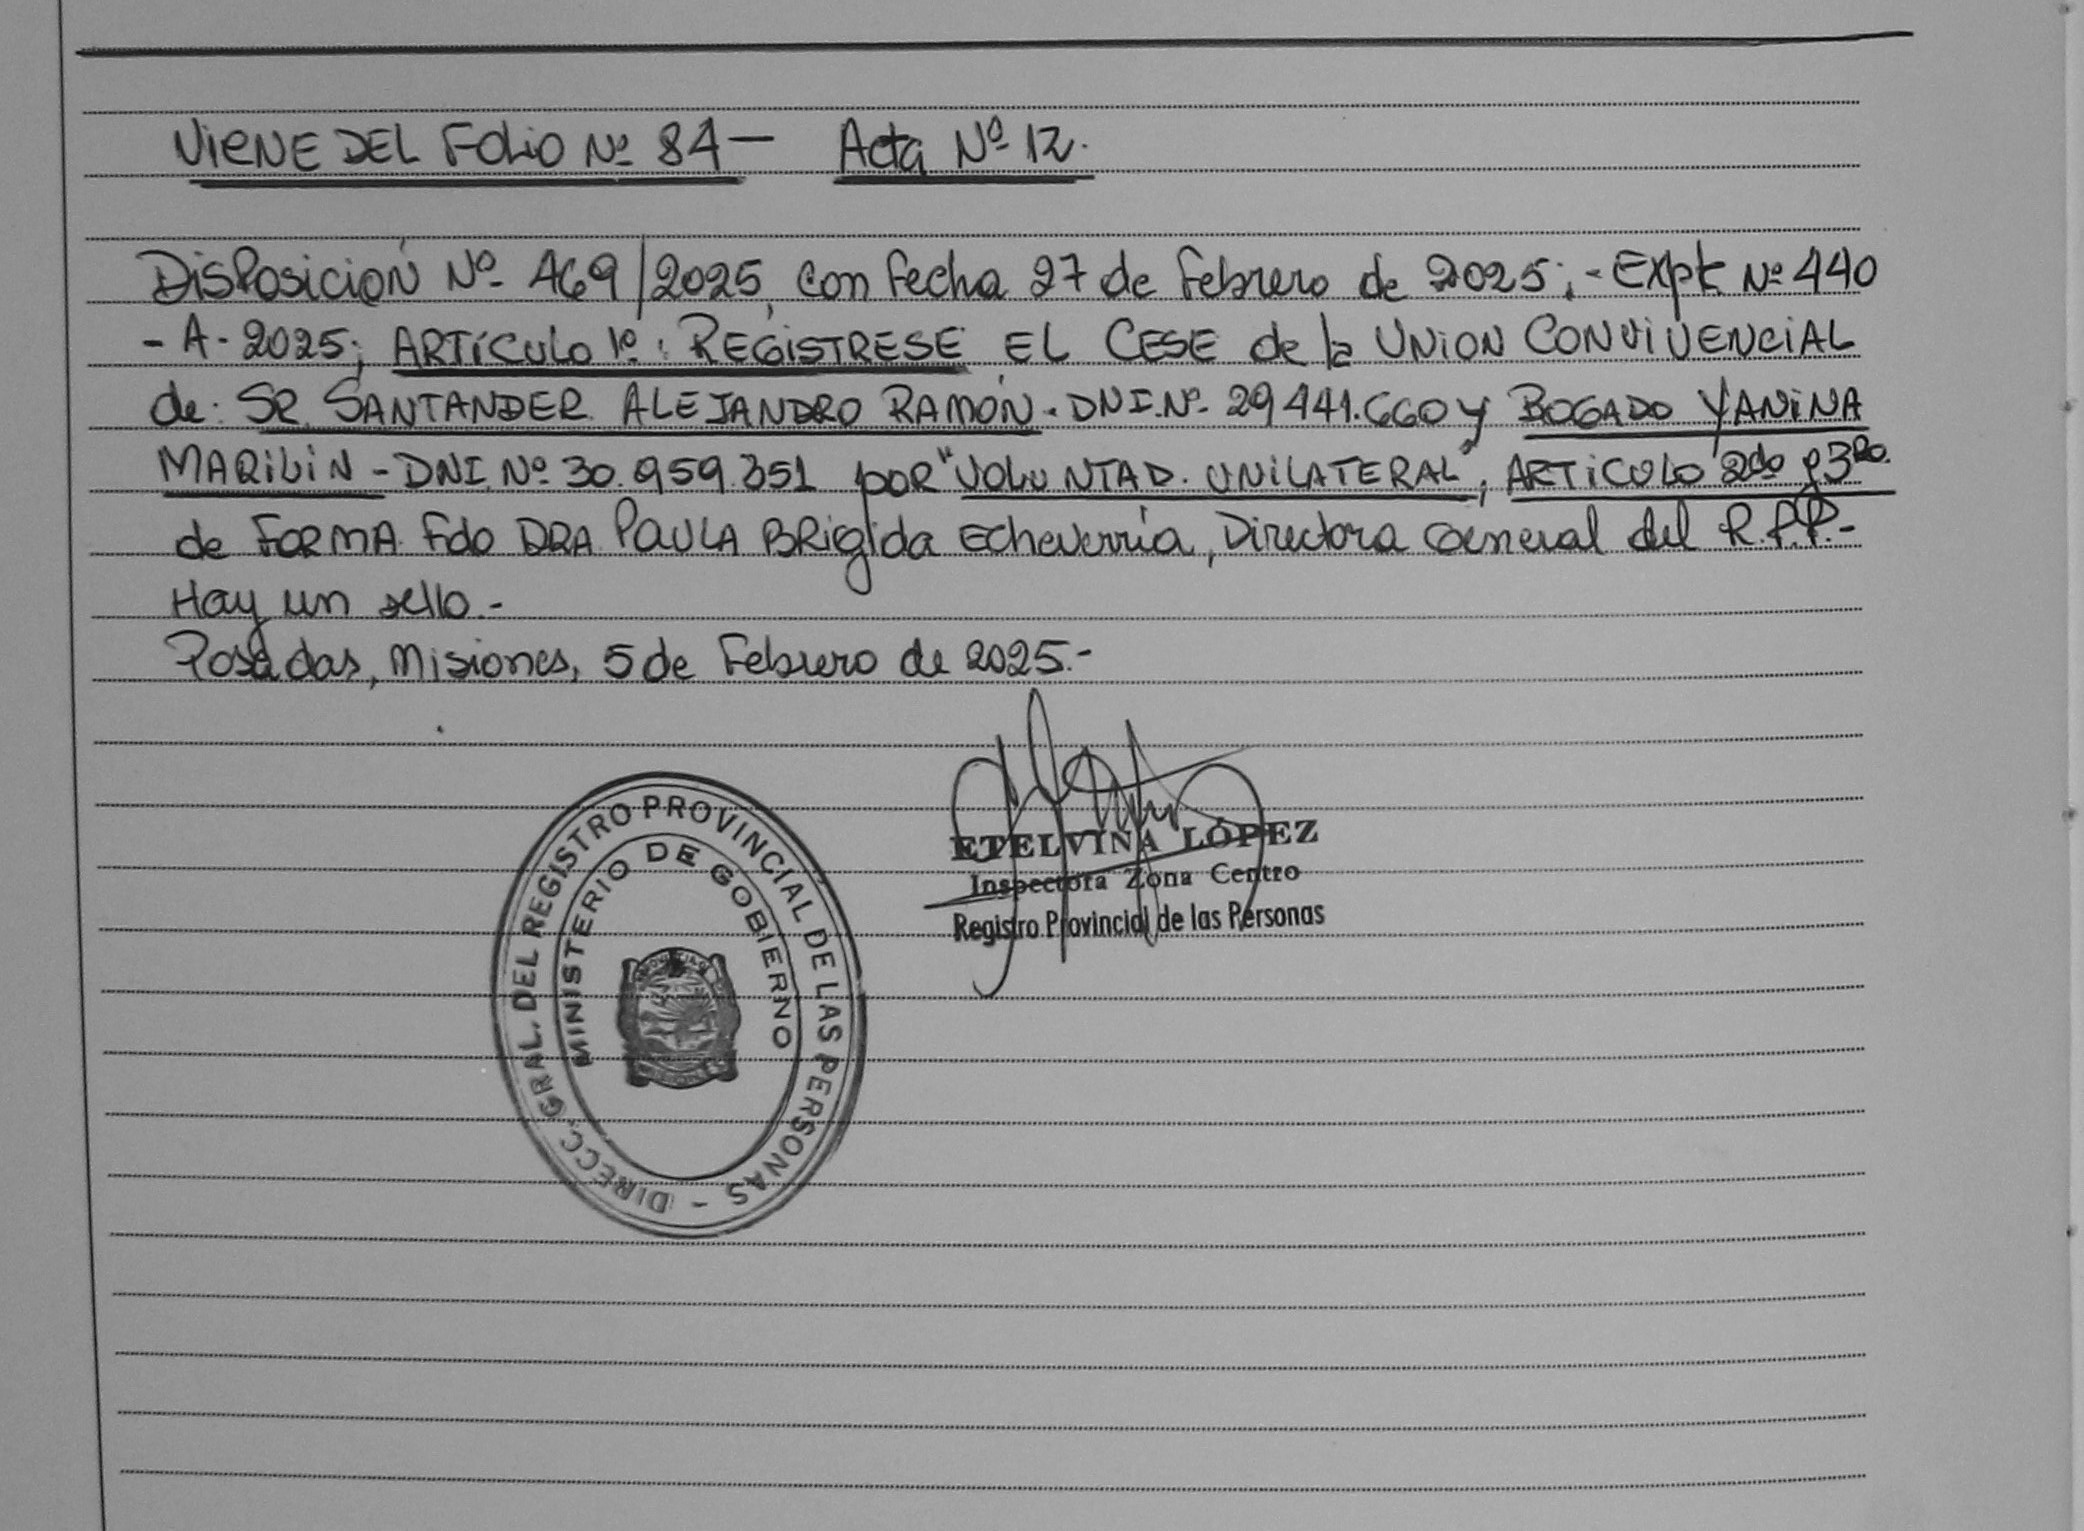 VIENE DEL FOLIO Nº 84 — Acta Nº 12.
DISPOSICIÓN Nº 469/2025, con fecha 27 de febrero de 2025; - Expte Nº 440
- A - 2025; ARTÍCULO 1º: REGISTRESE EL CESE de la UNION CONVIVENCIAL
de: SR SANTANDER ALEJANDRO RAMÓN - DNI.Nº 29441.660 y BOGADO YANINA
MARILIN - DNI. Nº 30.959.351 por "VOLUNTAD. UNILATERAL", ARTICULO 2do y 3RO.
de FORMA Fdo DRA PAULA BRIGIDA Echeverría, Directora General del R.P.P.-
Hay un sello.-
Posadas, Misiones, 5 de Febrero de 2025.-
ETELVINA LÓPEZ
Inspectora Zona Centro
Registro Provincial de las Personas
DIRECC. GRAL. DEL REGISTRO PROVINCIAL DE LAS PERSONAS -
MINISTERIO DE GOBIERNO